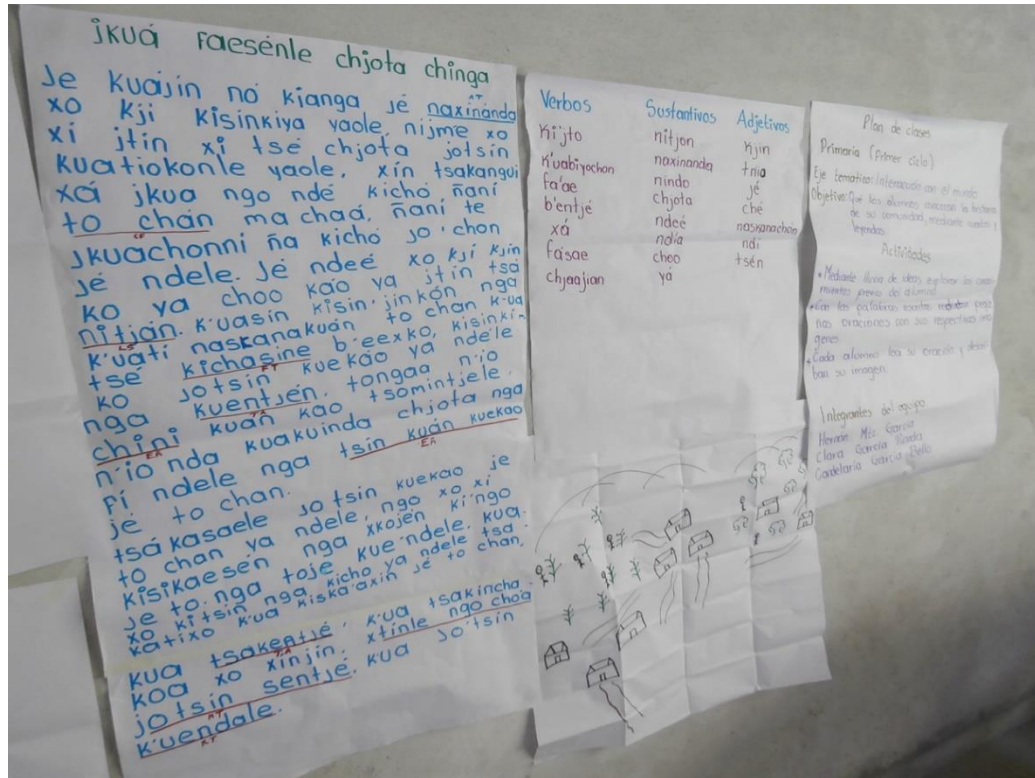 jkuá faesénle chjota chinga
Je kuájin nó kianga jé naxinándá
xo kji kisinkiya yaole, nijme xo
xi jtin xi tsé chjota jotsin
kuatiokonle yaole, xin tsakangui
xá jkua ngo ndé kichó ñaní
to chán ma chaá, ñaní te
jkuachonni ña kichó jo'chon
jé ndele. Jé ndeé xo kji kjin
ko ya choo kao ya jtin tsá
nitján. k'uasin kisin'jinkón nga
k'uati naskanakuán to chan k'ua
tsé kichasine b'eexko, kisinkin
ko jotsin kuekao ya nde'le
nga kuentsén, tongaa n'io
chini kuán kao tsomintjele.
n'io nda kuakuinda chjota nga
fi ndele nga tsin kuán kuekao
je to chan.
tsá kasaele jo tsin kuekao je
to chan ya ndele, ngo xo xi
kisikaesén nga xkojén ki'ngo
je to nga toje kue'ndele. kua
xo kitsin nga kicho ya ndele tsa
katixo k'ua kiska'axin jé to chan.
kua tsakentjé, k'ua tsakincha
koa xo xinjin, xtinle ngo choa
jotsin sentjé. kua jo'tsin
k'uendale.
Verbos
Ki'jto
k'uabiyochon
fa'ae
b'entjé
xá
fásae
chjaajian
Sustantivos
nitjon
naxinanda
nindo
chjota
ndeé
ndía
choo
yá
Adjetivos
kjin
tnia
jé
ché
naskanachon
ndi
tsén
Plan de clases
Primaria (Primer ciclo)
Eje tematico: Interacción con el mundo
Objetivo: Que los alumnos conozcan la historia
de su comunidad, mediante cuentos y
leyendas.
Actividades
• Mediante lluvia de ideas explorar los conoci
mientos previo del alumno
• Con las palabras escritas redactar peque
ñas oraciones con sus respectivas imá
genes.
• Cada alumno lea su oración y descri
ban su imagen.
Integrantes del equipo
Hernán Mtz García
Clara García
Candelaria García Bello